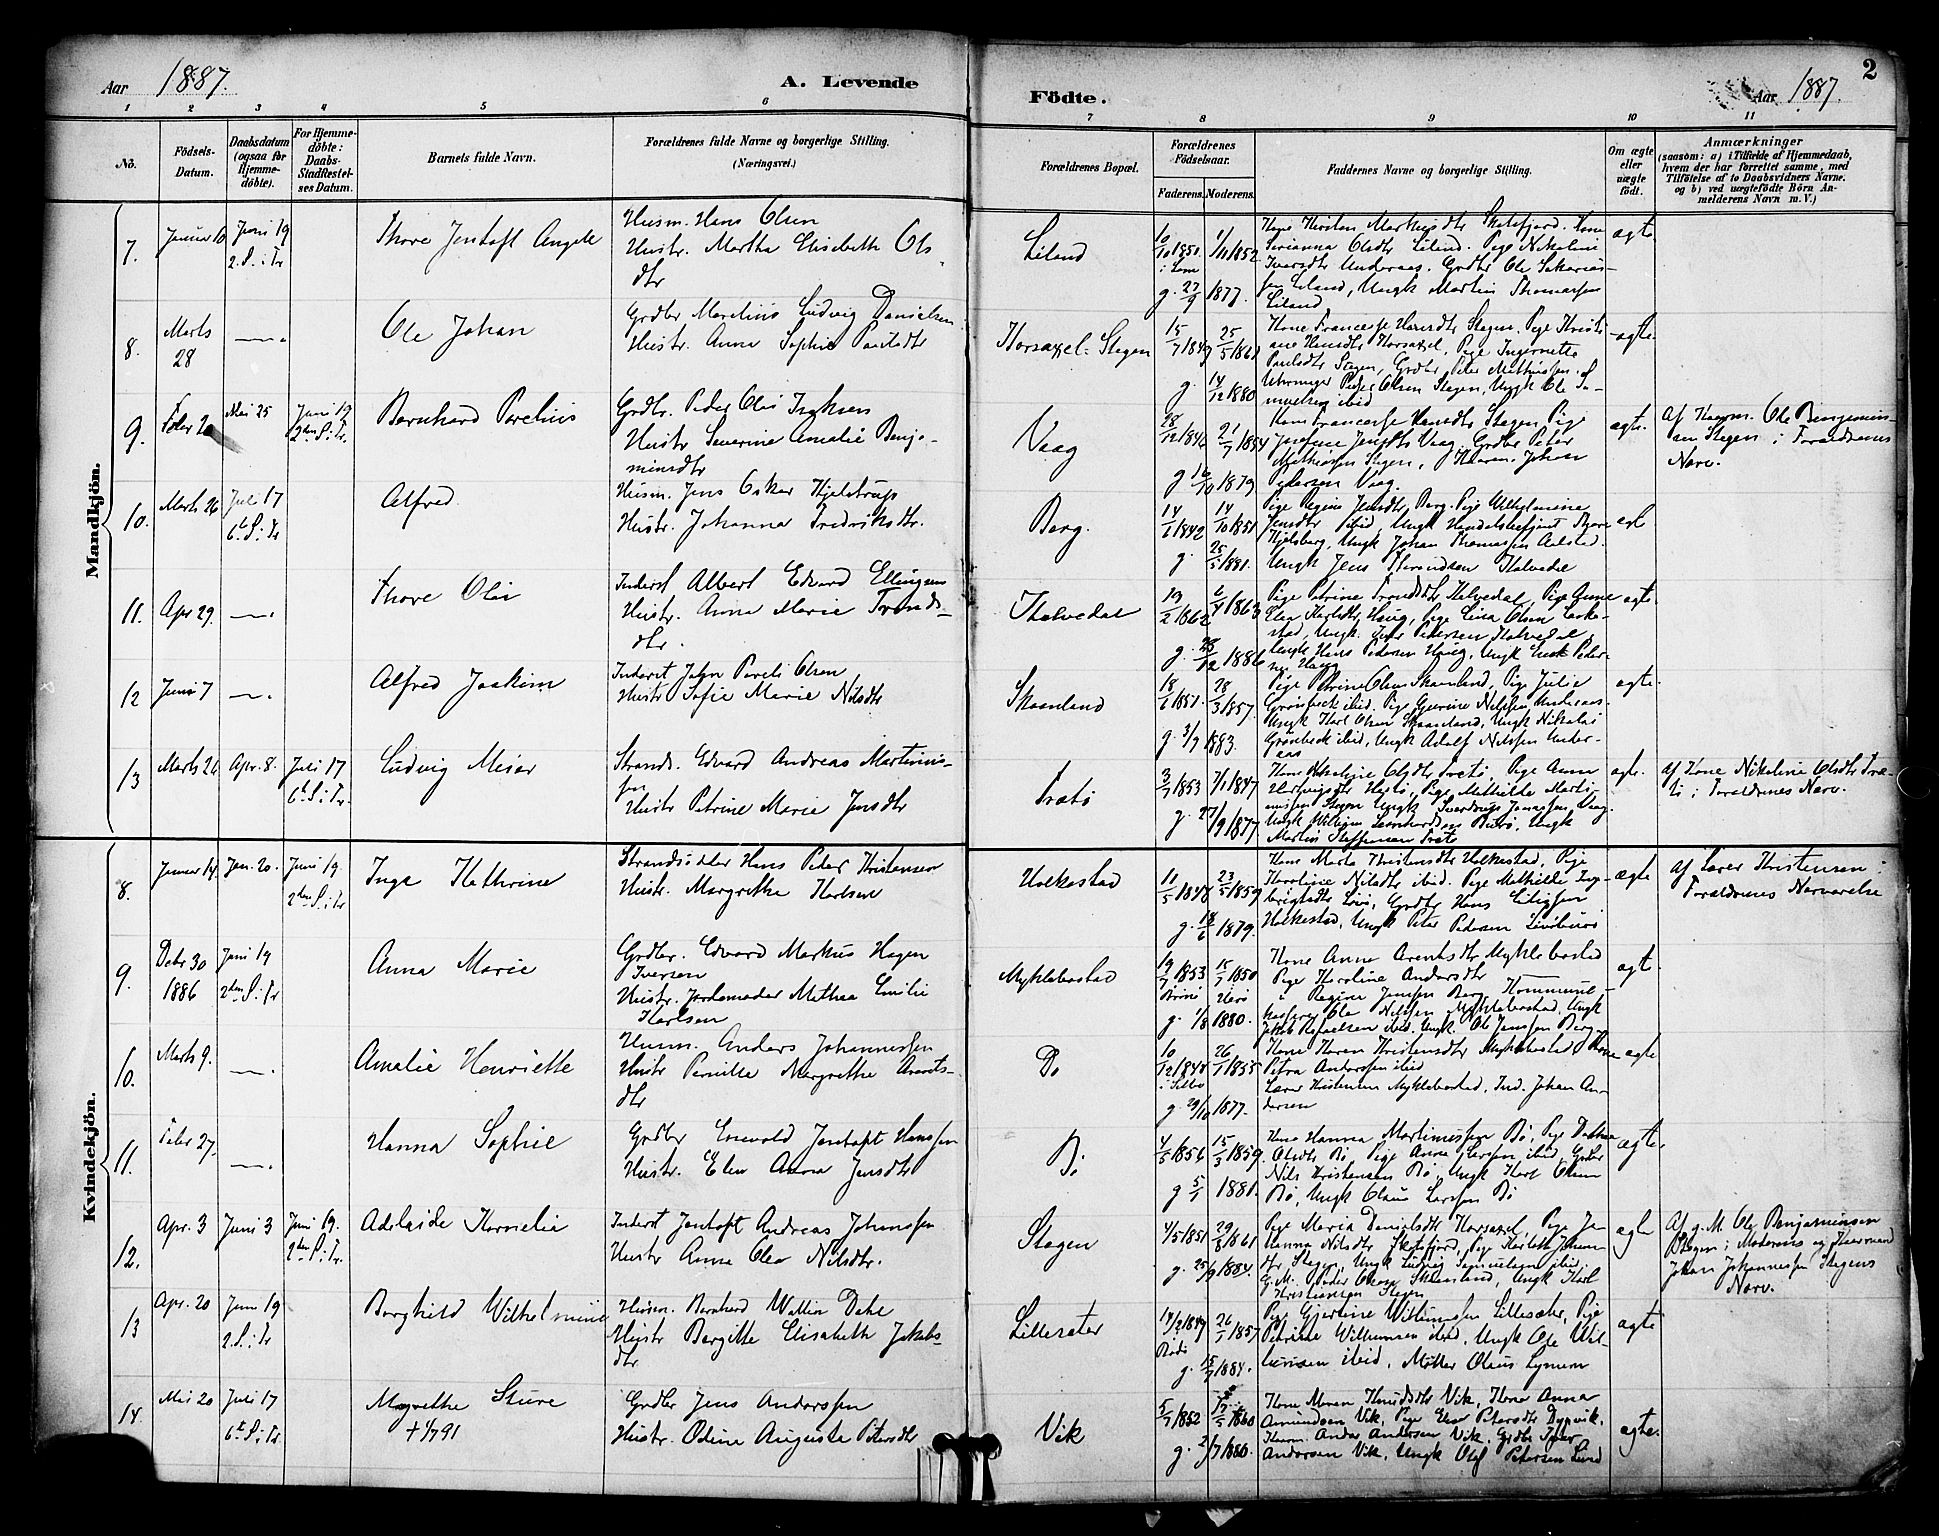 Aar 1887. A. Levende
Födte. Aar 1887. 2
1 2 3 4 5 6
7 8 9 10 11
No. Födsels-Datum. Daabsdatum (ogsaa for Hjemme-döbte). For Hjemme-döbte: Daabs-Stadfæstel-ses Datum. Barnets fulde Navn. Forældrenes fulde Navne og borgerlige Stilling. (Næringsvei.)
Forældrenes Bopæl. Forældrenes Födselsaar. Faderens. Moderens. Faddernes Navne og borgerlige Stilling. Om ægte eller uægte födt. Anmærkninger (saasom: a) i Tilfælde af Hjemmedaab, hvem der har forrettet samme, med Tilföielse af to Daabsvidners Navne. og b) ved uægtefödte Börn An-melderens Navn m. V.)
Mandkjön.
7. Januar 10 Juni 19 2. S. i Tr Thore Jentoft Angele
Husm. Hans Olsen
Hustr. Martha Elisebeth Ols
dtr
Liland 10/10 1850 i Lom 1/11 1852 g. 27/9 1877.
Serianna Olsdtr Liland. Pige Nikoline
Iversdtr Underaas. Grdbr Ole Sakarias-
sen Liland, Ungk Martin Thomassen
Liland
ægte
8. Marts 28 Ole Johan
Grdbr Marelius Ludvig Danielsen
Hustr. Anna Sophie Paulsdtr
Korsaxel: Stegen 15/7 1849 25/5 1861 g. 14/12 1880
Kone Francesse Hansdtr Stegen. Pige Kristi-
ane Hansdtr Korsaxel, Pige Ingernette
Paulsdtr Stegen, Grdbr Peter Mathiassen.
Uhrmager Peder Olsen Stegen, Ungk Ole Sa-
muelsen ibid
ægte.
9. Febr 20 Mai 25 Juni 19 2den S. i Tr. Bernhard Parelius
Grdbr. Peder Olai Isaksen
Hustr Severine Amalie Benja-
minsdtr
Vaag 28/12 1846 21/7 1854 g 16/10 1879
Kone Francesse Hansdtr Stegen Pige
Josefine Jensdtr Vaag. Grdbr Peter
Mathiassen Stegen, Johan
Pedersen Vaag.
ægte.
Af Ole Benjamin-
sen Stegen i Forældrenes
Nærv.
10. Marts 26 Juli 17 6te S. i Tr Alfred
Husm. Jens Oskar Hjelstrup
Hustr. Johanna Fredriksdtr.
Berg. 14/6 1842 14/10 1851 g. 25/5 1881.
Pige Regine Jensdtr Berg. Pige Wilhelmine
Jensdtr ibid, Ungk Handelsbetjent Thore
Hjelsberg, Ungk Johan Thomassen Aalstad.
Ungk Jens Throndsen Italvedal
11. Apr 29. Thore Olai
Inderst Albert Edvard Ellingsen
Hustr. Anna Marie Tronds-
dtr.
Italvedal 19/2 1862 6/4 1863 g. 28/12 1886
Pige Petrine Trondsdtr Italvedal, Pige Anne
Ungk Hans Pedersen Haug, Ungk Peder-
sen Haug
ægte.
12 Juni 7 Alfred Joakim
Inderst John Pareli Olsen
Hustr Sofie Marie Nilsdtr
Skaanland 18/6 1851. 28/3 1857. g. 3/9 1883.
Pige Petrine Olsen Skaanland, Pige Julie
Grönbeck ibid. Pige Gjerine Nilssen Underaas
Ungk Karl Olsen Skaanland, Ungk Nikolai
Grönbeck ibid, Ungk Adolf Nilssen Under-
aas
ægte.
13 Marts 26 Apr. 8. Juli 17 6te S. i Tr. Ludvig Meier
Strands. Edvard Andreas Martinus-
sen
Hustr Petrine Marie Jensdtr
Trætö 3/7 1853 7/1 1847 g. 27/9 1877.
Martin Steffensen Trætö
ægte.
Af Kone Nikoline Olsdtr Træ-
tö i Forældrenes Nærv.
Kvindekjön.
8. Januar 14. Jan. 20. Juni 19. 2den S. i Tr Inga Kathrine
Strandsidder Hans Peter Kristensen
Hustr. Margrethe Karlsen
Holkestad 10/5 1848 23/5 1859 g. 18/6 1879.
Kone Marta Kristensdtr Holkestad, Pige
Karoline Nilsdtr ibid. Pige Mathilde Ing-
Holkestad, Ungk Peter Pedersen
ægte
Af Lærer Kristensen i
Forældrenes Nærværelse
9. Debr 30 1886 Juni 19 2den S. i Tr Anna Marie
Grdbr. Edvard Markus Hagen
Iversen
Hustr. Jordemoder Mathea Emilie
Karlsen
Myklebostad 19/7 1853 15/7 1850 g. 1/8 1880.
Kone Anna Arentsdtr Myklebostad
Pige Karoline Andersdtr
" Regine Jenssen Berg. Kommune-
kasserer Ole Nilssen Myklebostad, Ungk
Jakob Rafaelsen ibid. Ungk. Ole Jenssen Berg
ægte.
10. Marts 9. Amalie Henriette
Husm. Anders Johannessen
Hustr Pernille Margrethe Arents-
dtr
Do 10/12 1848 26/1 1855 g. 29/10 1877.
Kone Karen Kristensdtr Myklebostad Kone
Petra Anderssen ibid
Lærer Kristensen Myklebostad, Ind. Johan An-
dersen
ægte
11. Febr 27. Hanna Sophie
Grdbr Enevold Jentoft Hanssen
Hustr. Elen Anna Jensdtr
Bö 4/5 1856 15/3 1859. g 5/1 1881.
Kone Hanna Martinussen Bö, Pige Dorthea
Olsdtr Bö Pige Anna Larsen ibid, Grdbr
Nils Kristensen Bö, Ungk Karl Olsen
Bö, Ungk Claus Larssen Bö
ægte.
12. Apr. 3 Juni 3 Juni 19. 2den S. i Tr Adelaide Kornelia
Inderst Jentoft Andreas Johanssen
Hustr Anna Olea Nilsdtr.
Stegen 4/5 1851 29/8 1861 g. 25/9 1884.
Pige Maria Danielsdtr Korsaxel, Pige Jo-
hanna Nilsdtr Skotsfjord, Pige
dtr Stegen, Ungk Ludvig Samuelsen ibid,
G.M. Peder Olsen Skaanland, Ungk Karl
Kristiansen Stegen
ægte
Af g. M. Ole Benjaminsen
Stegen i Moderens og
Johan Johannessen Stegens
Nærv.
13 Apr. 20 Juni 19 2. S. i Tr Borghild Wilhelmine
Husm. Bernhard Wallin Dahl
Hustr Bergitte Elisabeth Jakobs-
dtr
Lillesæter 14/2 1849 Bodö 26/1 1857 g. 15/7 1884.
Pige Gjertine Willumsen Lillesæter, Pige
Petrikke Willumsen ibid, Ungk Ole Wil-
lumsen ibid, Møller Olaus Lynum
ægte
14. Mai 20 Juli 17 6te S. i Tr Magrethe Sture
+ 4/7 91
Grdbr Jens Anderssen
Hustr. Odine Auguste Petersdtr
Vik 5/7 1852 17/5 1860 g. 2/7 1880.
Kone Maren Knudsdtr Vik, Kone Anna
Amundsen Vik, Pige Elen Petersdtr Dypvik,
Anders Andersen Vik, Grdbr Iver
Andersen Vik, Ungk Olof Petersen Lund
ægte.